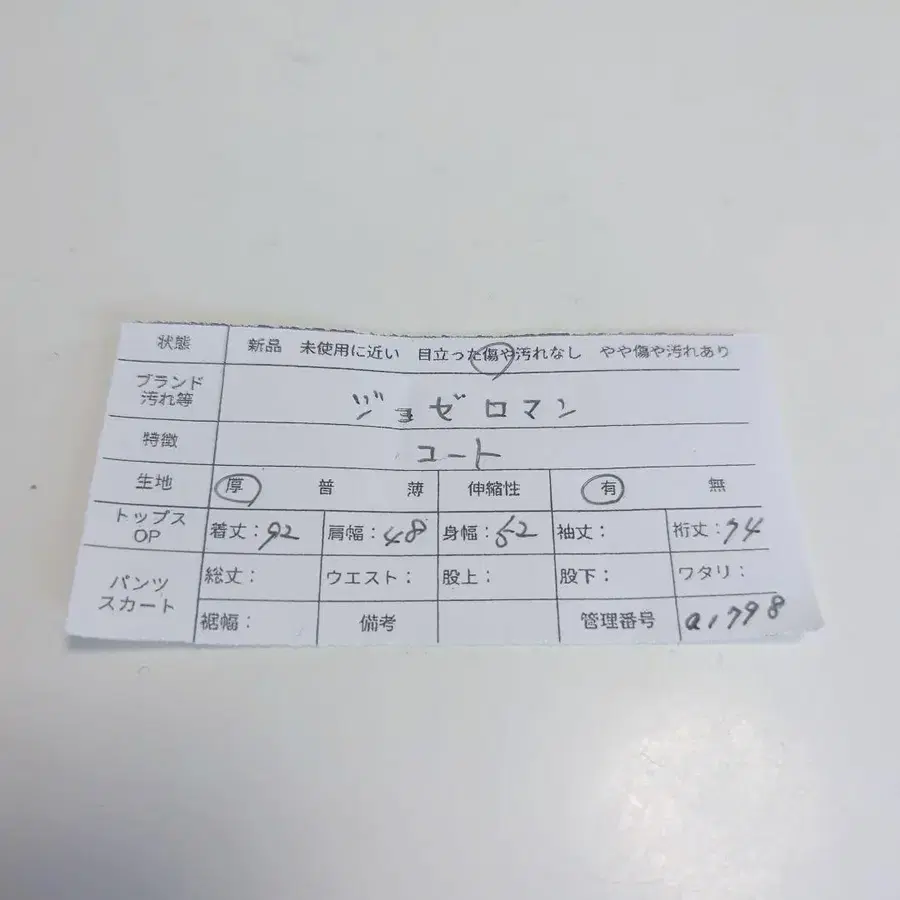 状態 新品 未使用に近い 目立った傷や汚れなし やや傷や汚れあり
ブランド 汚れ等 ジョゼロマン
特徴 コート
生地 厚 普 薄 伸縮性 有 無
トップス OP 着丈：92 肩幅：48 身幅：52 袖丈： 裄丈：74
パンツ スカート 総丈： ウエスト： 股上： 股下： ワタリ：
裾幅： 備考 管理番号 a1798